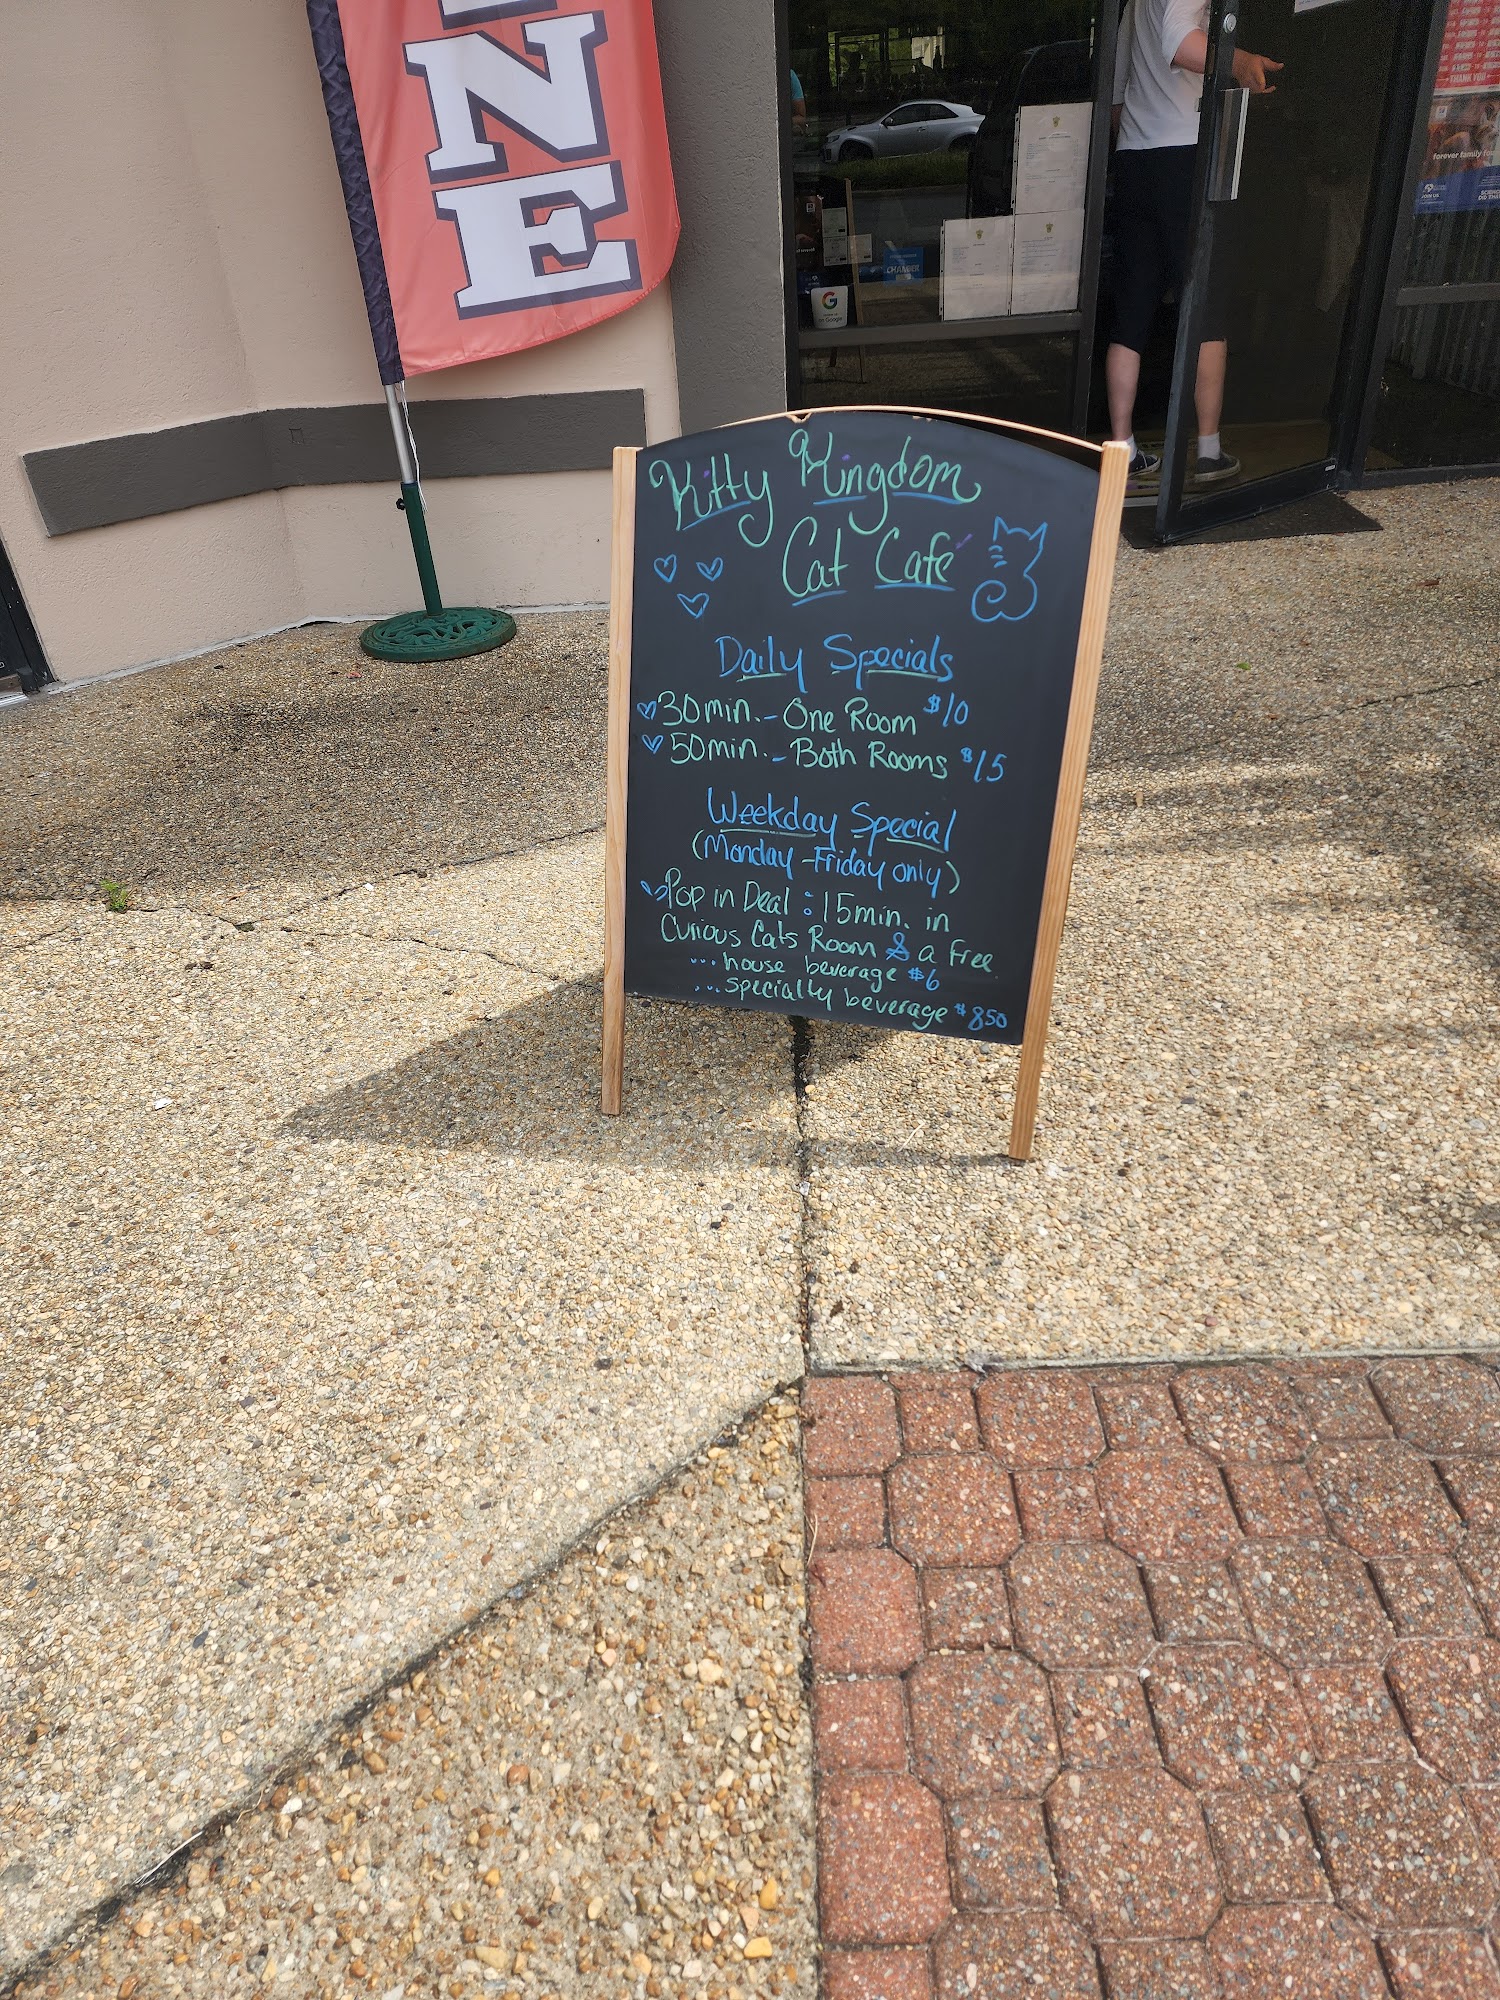 NE
Kitty Kingdom
Cat Café
Daily Specials
30min. - One Room $10
50min. - Both Rooms $15
Weekday Special
(Monday - Friday only)
Pop in Deal : 15min. in
Curious Cats Room & a free
... house beverage $6
... specialty beverage $850
G
CHAMBER
THANK YOU
forever family
JOIN US